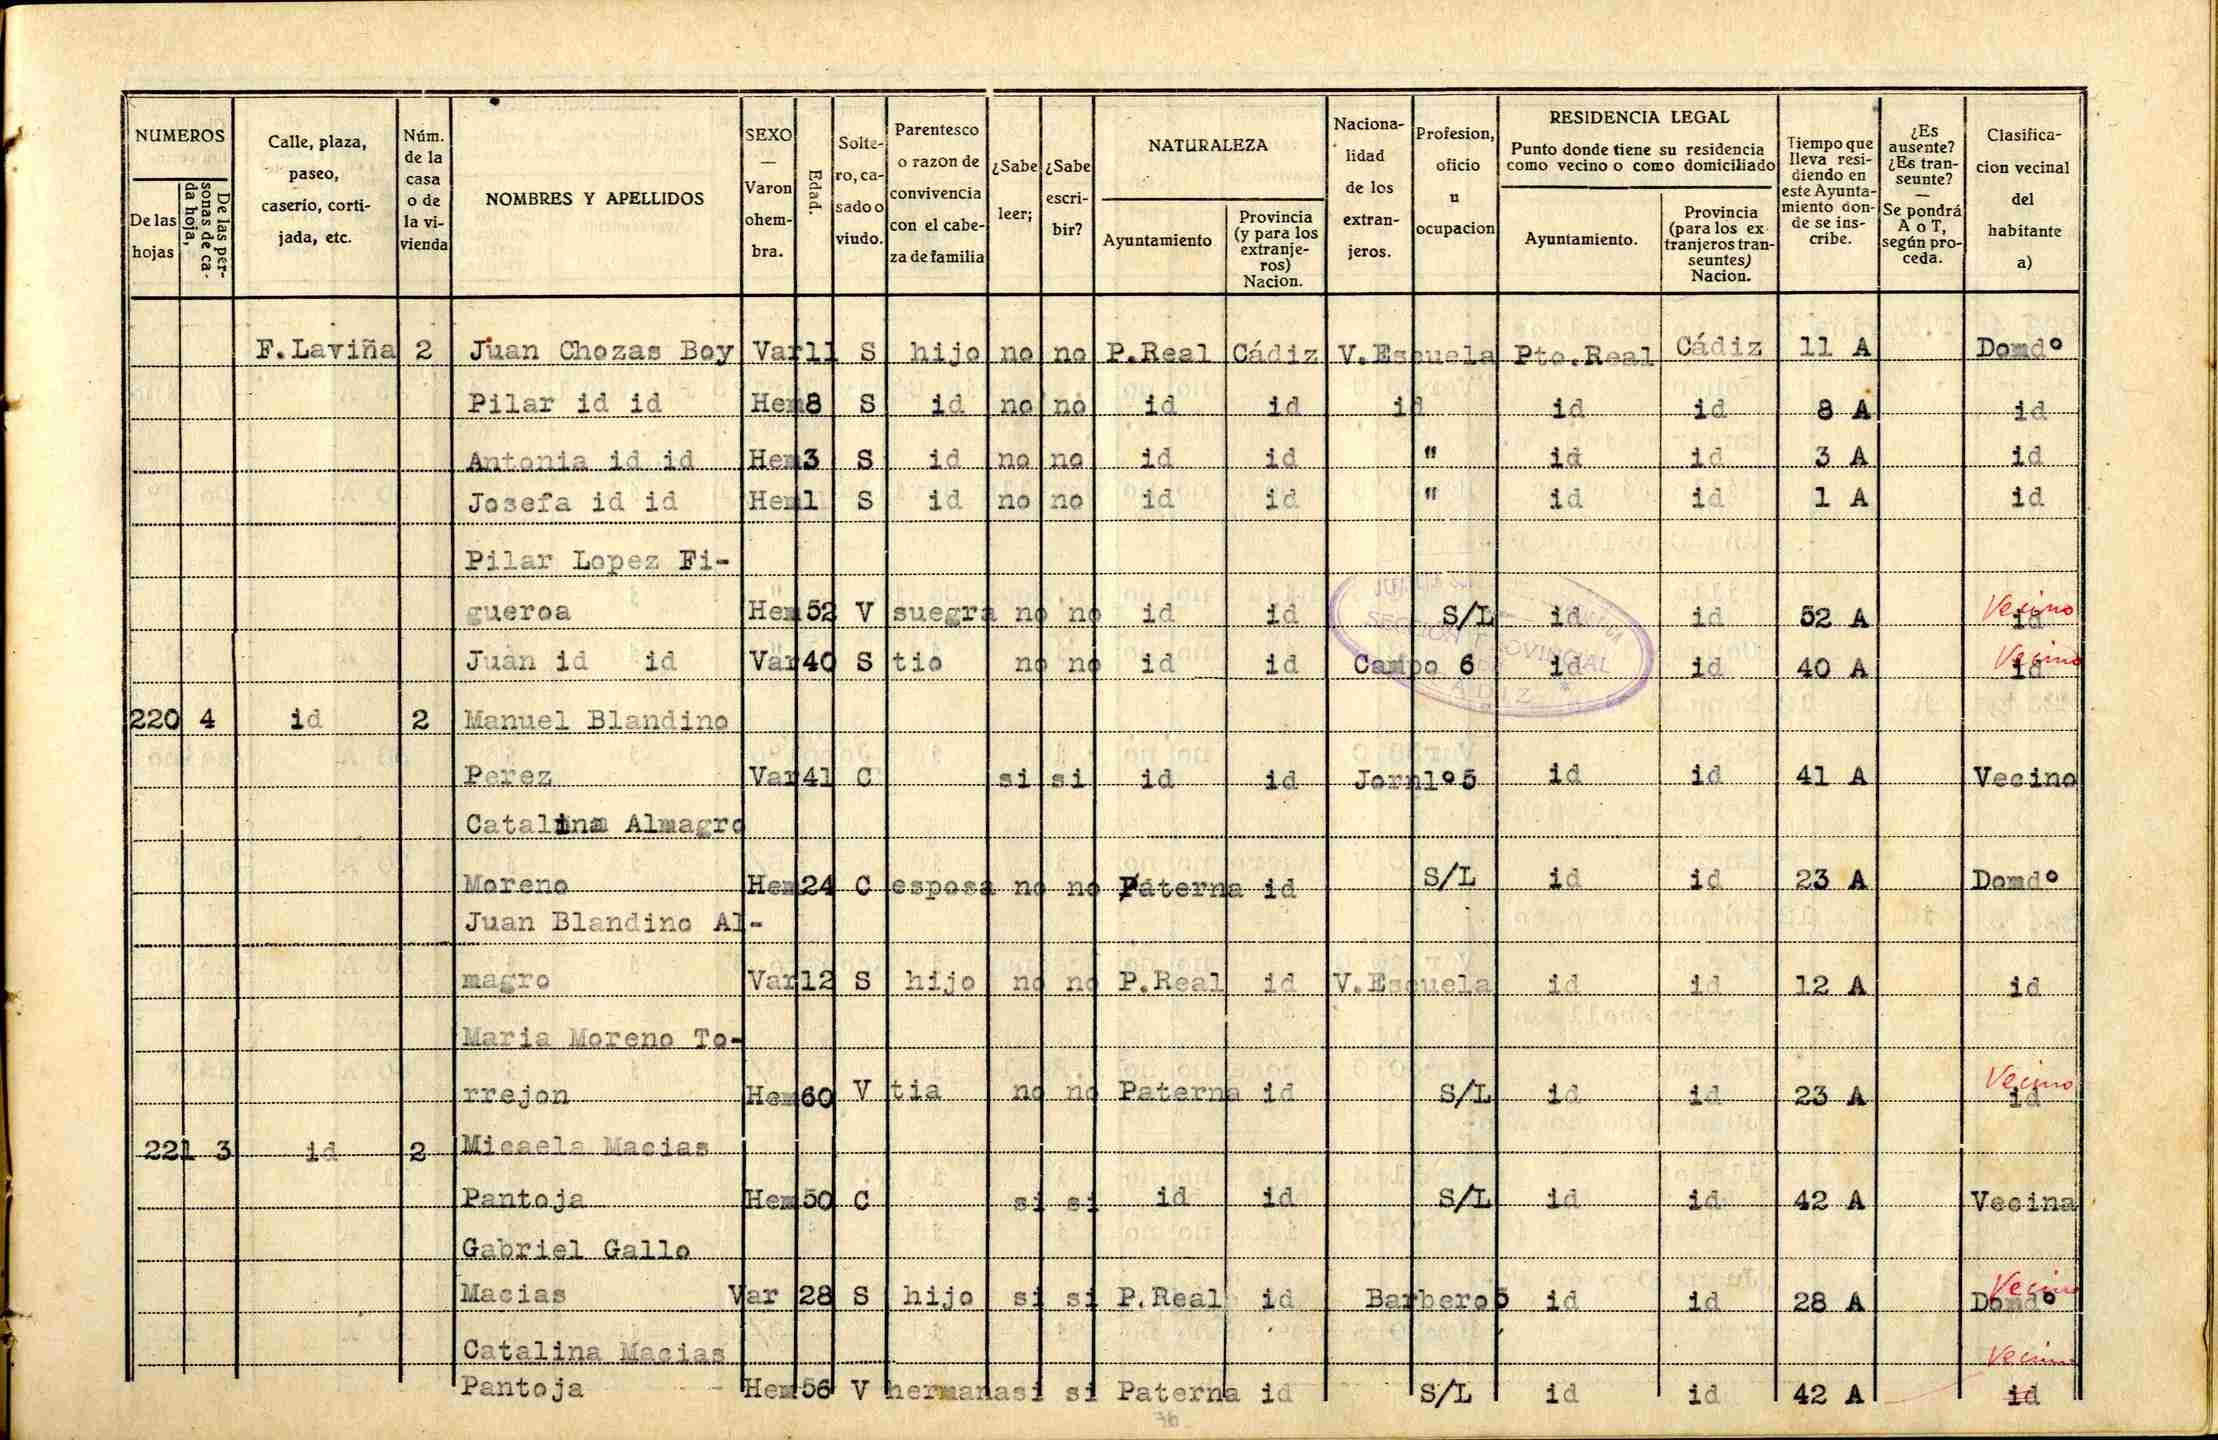 NUMEROS
De las hojas
De las personas de cada hoja,
Calle, plaza, paseo, caserio, cortijada, etc.
Núm. de la casa o de la vivienda
NOMBRES Y APELLIDOS
SEXO — Varon ohembra.
Edad.
Soltero, casado o viudo.
Parentesco o razon de convivencia con el cabeza de familia
¿Sabe leer;
¿Sabe escribir?
NATURALEZA
Ayuntamiento
Provincia (y para los extranjeros) Nacion.
Nacionalidad de los extranjeros.
Profesion, oficio u ocupacion
RESIDENCIA LEGAL
Punto donde tiene su residencia como vecino o como domiciliado
Ayuntamiento.
Provincia (para los extranjeros transeuntes) Nacion.
Tiempo que lleva residiendo en este Ayuntamiento donde se inscribe.
¿Es ausente? ¿Es transeunte? — Se pondrá A o T, según proceda.
Clasificacion vecinal del habitante a)
F.Laviña 2 Juan Chozas Boy Var 11 S hijo no no P.Real Cádiz V.Escuela Pto.Real Cádiz 11 A Domdº
Pilar id id Hem 8 S id no no id id id id id 8 A id
Antonia id id Hem 3 S id no no id id " id id 3 A id
Josefa id id Hem 1 S id no no id id " id id 1 A id
Pilar Lopez Fi-
gueroa Hem 52 V suegra no no id id S/L id id 52 A id Vecino
Juan id id Var 40 S tio no no id id Campo 6 id id 40 A id Vecino
SECCION PROVINCIAL
220 4 id 2 Manuel Blandino
Perez Var 41 C si si id id Jornlº 5 id id 41 A Vecino
Catalina Almagro
Moreno Hem 24 C esposa no no Paterna id S/L id id 23 A Domdº
Juan Blandino Al-
magro Var 12 S hijo no no P.Real id V.Escuela id id 12 A id
Maria Moreno To-
rrejon Hem 60 V tia no no Paterna id S/L id id 23 A id Vecino
221 3 id 2 Micaela Macias
Pantoja Hem 50 C si si id id S/L id id 42 A Vecina
Gabriel Gallo
Macias Var 28 S hijo si si P.Real id Barbero 5 id id 28 A Domdº Vecino
Catalina Macias
Pantoja Hem 56 V hermana si si Paterna id S/L id id 42 A id Vecino
36